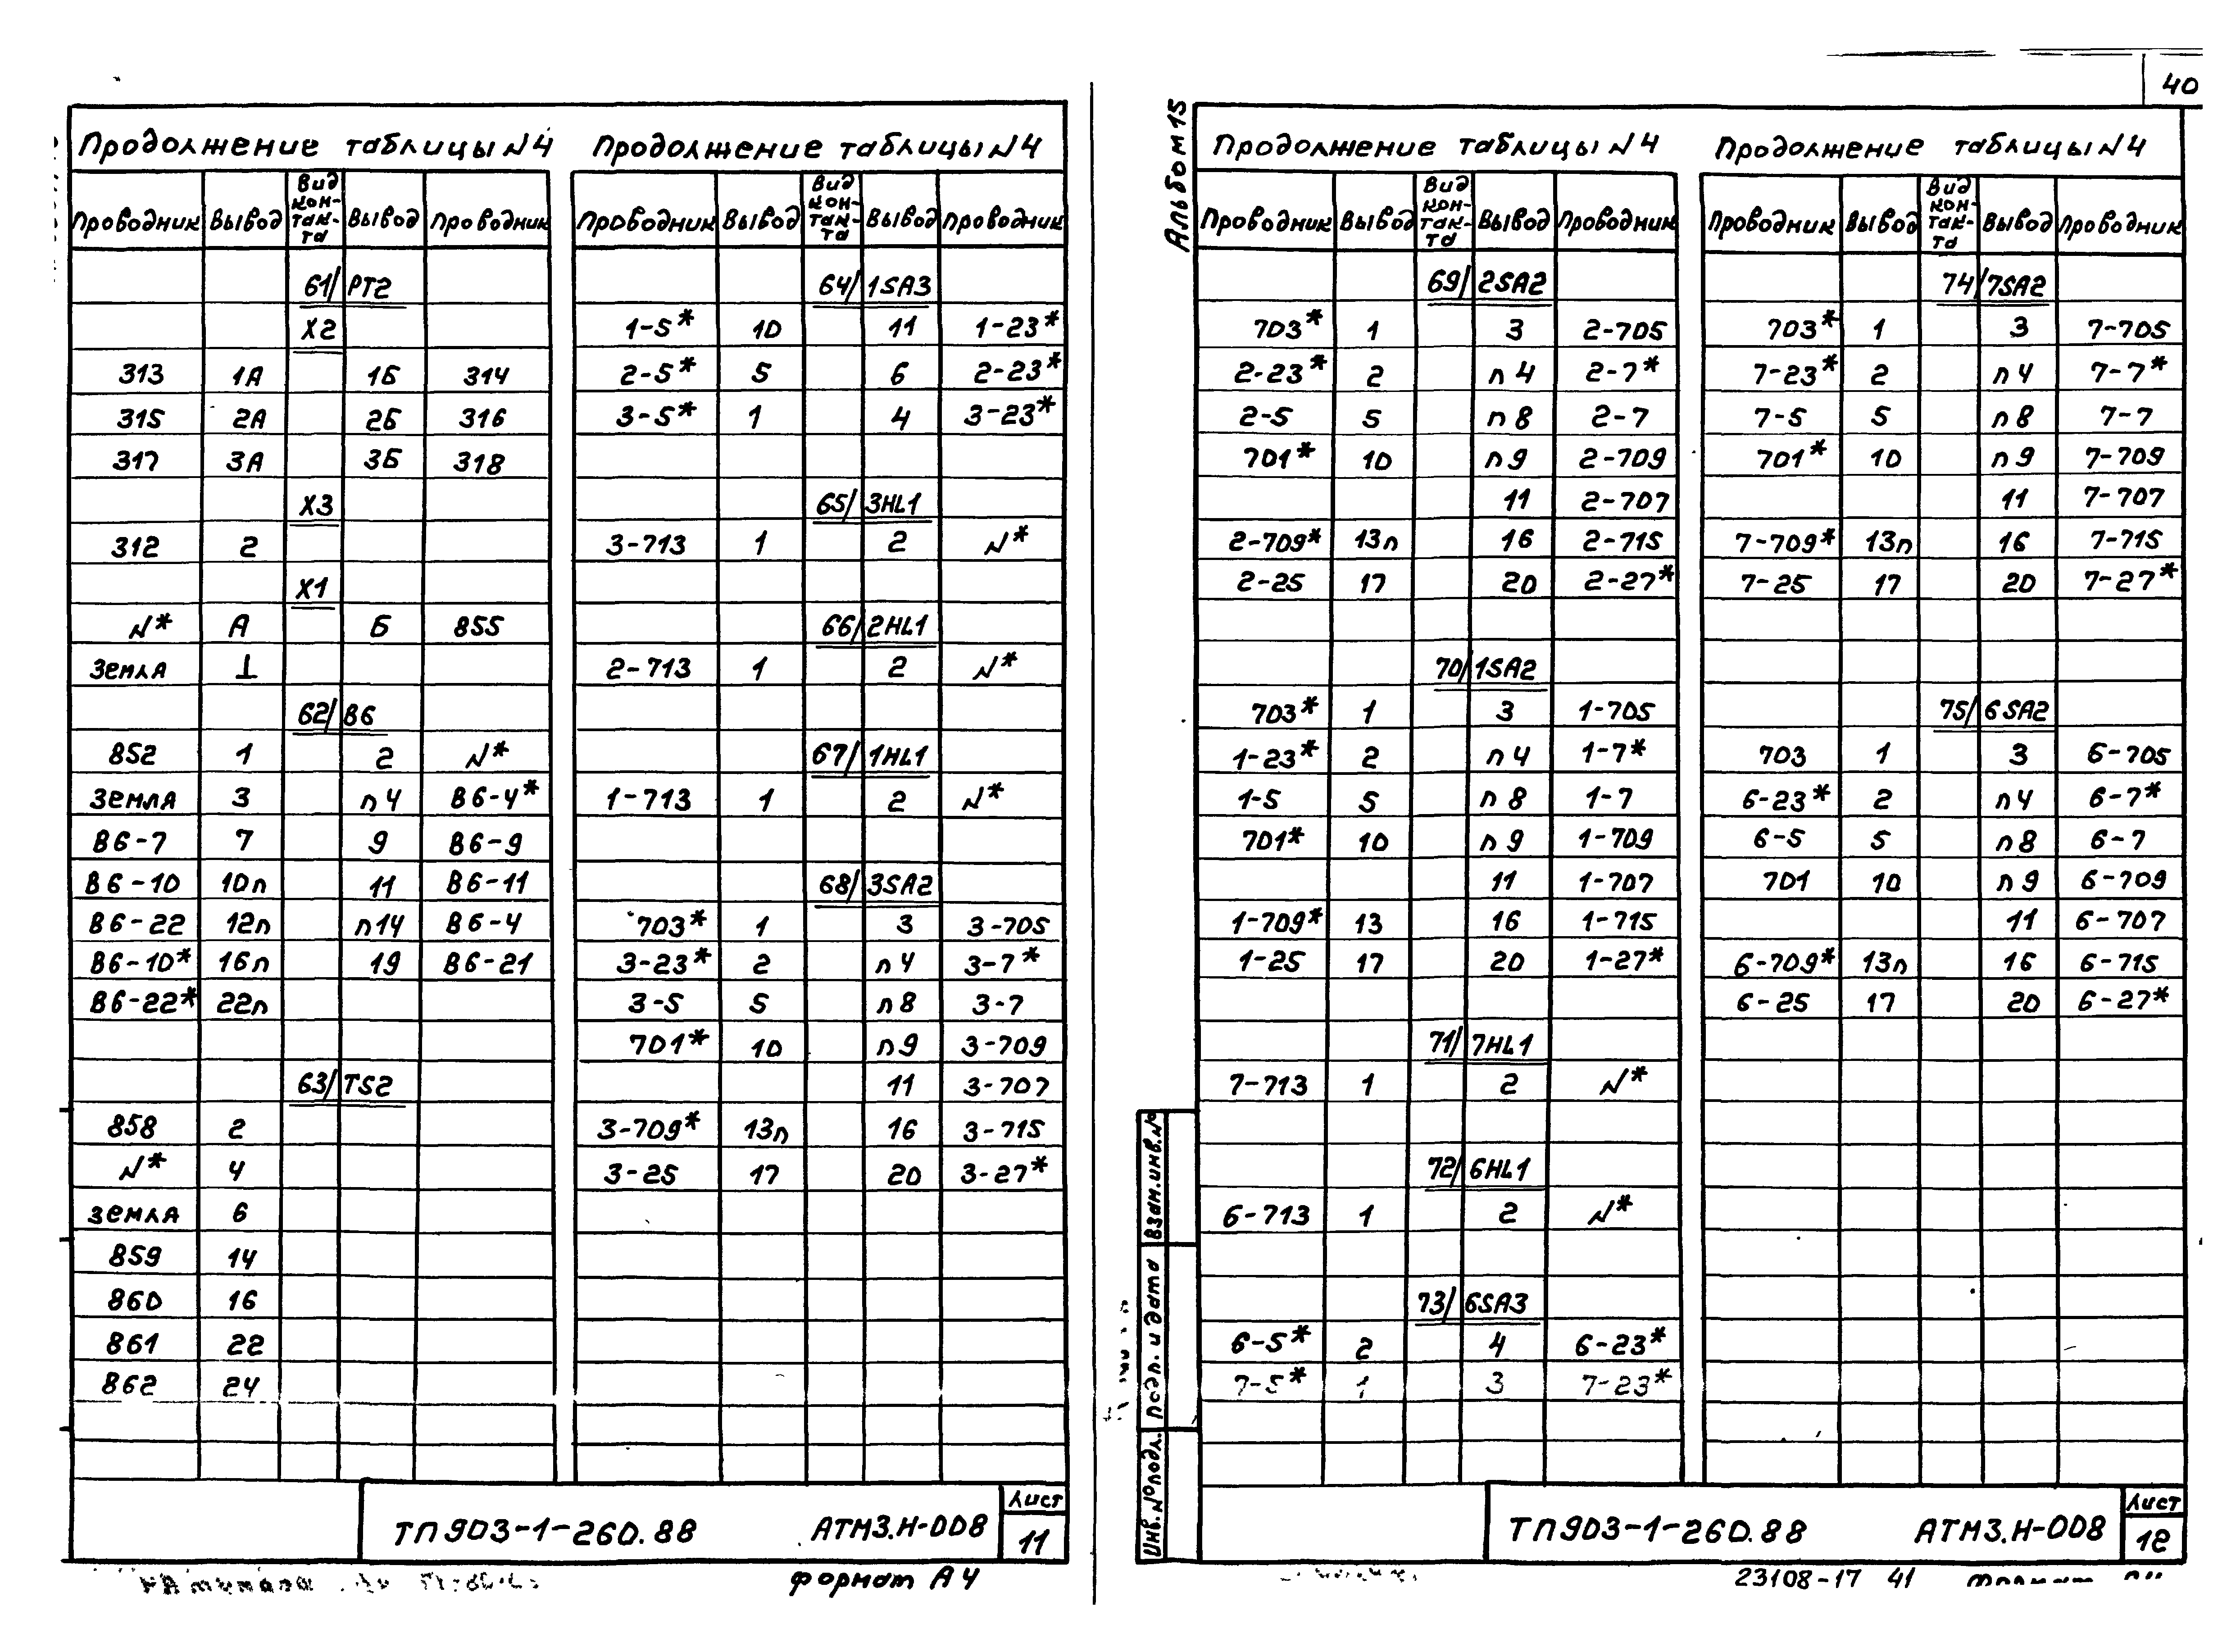 40
Альбом 15
Продолжение таблицы N4
Проводник Вывод Вид кон-так-та Вывод Проводник
61/РТ2
Х2
313 1А 1Б 314
315 2А 2Б 316
317 3А 3Б 318
Х3
312 2
Х1
N* А Б 855
Земля ⊥
62/В6
852 1 2 N*
Земля 3 п4 В6-4*
В6-7 7 9 В6-9
В6-10 10п 11 В6-11
В6-22 12п п14 В6-4
В6-10* 16п 19 В6-21
В6-22* 22п
63/TS2
858 2
N* 4
Земля 6
859 14
860 16
861 22
862 24
Продолжение таблицы N4
Проводник Вывод Вид кон-так-та Вывод Проводник
64/1SA3
1-5* 10 11 1-23*
2-5* 5 6 2-23*
3-5* 1 4 3-23*
65/3HL1
3-713 1 2 N*
66/2HL1
2-713 1 2 N*
67/1HL1
1-713 1 2 N*
68/3SA2
703* 1 3 3-705
3-23* 2 п4 3-7*
3-5 5 п8 3-7
701* 10 п9 3-709
11 3-707
3-709* 13п 16 3-715
3-25 17 20 3-27*
ТП 903-1-260.88 АТМ3.Н-008 Лист 11
формат А4
Продолжение таблицы N4
Проводник Вывод Вид кон-так-та Вывод Проводник
69/2SA2
703* 1 3 2-705
2-23* 2 п4 2-7*
2-5 5 п8 2-7
701* 10 п9 2-709
11 2-707
2-709* 13п 16 2-715
2-25 17 20 2-27*
70/1SA2
703* 1 3 1-705
1-23* 2 п4 1-7*
1-5 5 п8 1-7
701* 10 п9 1-709
11 1-707
1-709* 13 16 1-715
1-25 17 20 1-27*
71/7HL1
7-713 1 2 N*
72/6HL1
6-713 1 2 N*
73/6SA3
6-5* 2 4 6-23*
7-5* 1 3 7-23*
Продолжение таблицы N4
Проводник Вывод Вид кон-так-та Вывод Проводник
74/7SA2
703* 1 3 7-705
7-23* 2 п4 7-7*
7-5 5 п8 7-7
701* 10 п9 7-709
11 7-707
7-709* 13п 16 7-715
7-25 17 20 7-27*
75/6SA2
703 1 3 6-705
6-23* 2 п4 6-7*
6-5 5 п8 6-7
701 10 п9 6-709
11 6-707
6-709* 13п 16 6-715
6-25 17 20 6-27*
Взам.инв.№
Подп. и дата
Инв.№подл.
ТП 903-1-260.88 АТМ3.Н-008 Лист 12
23108-17 41